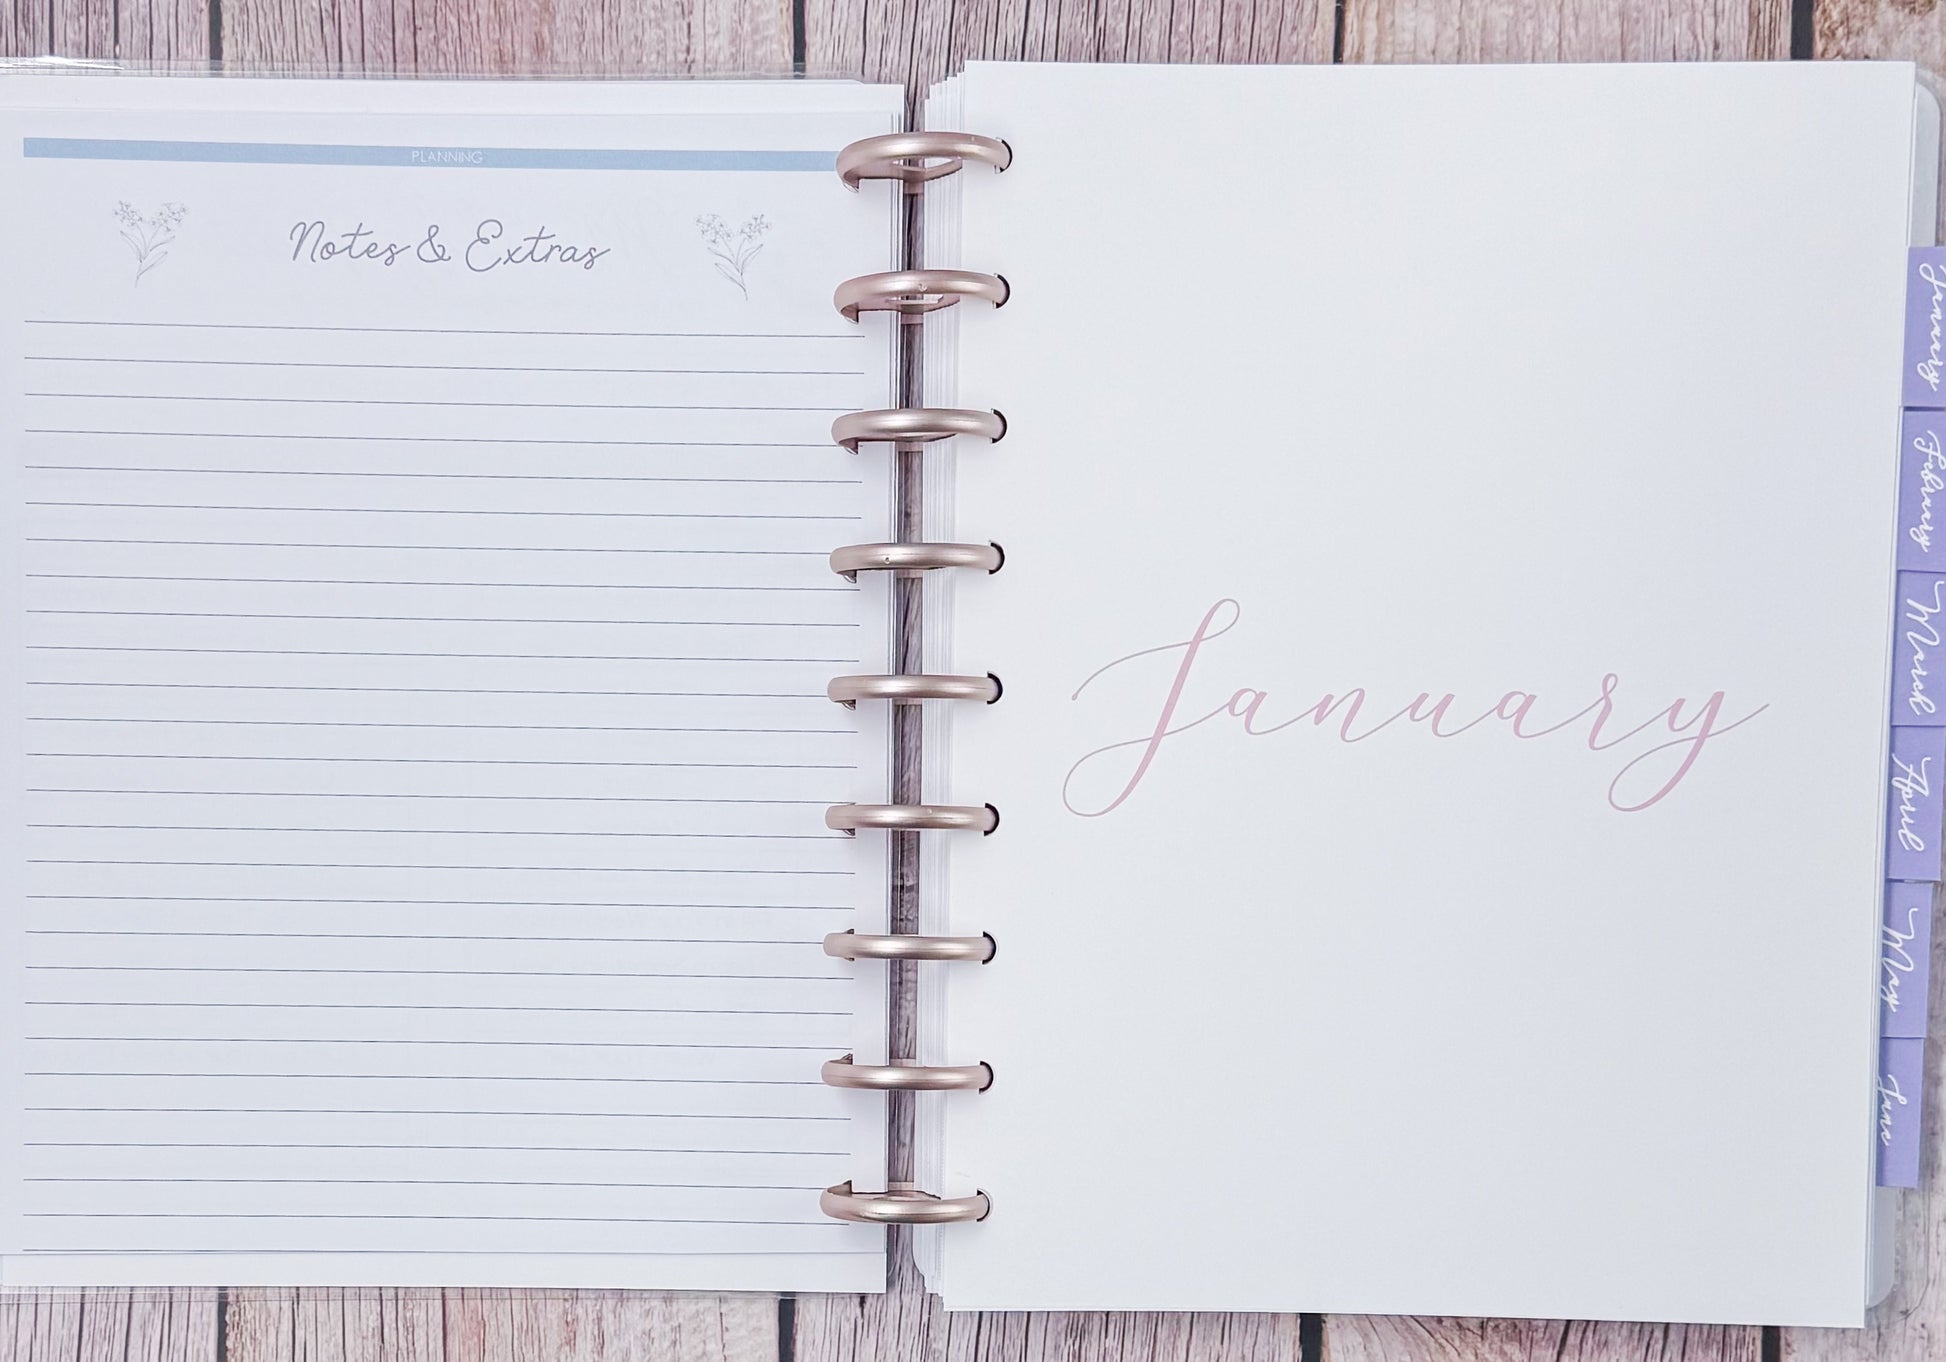 PLANNING
Notes & Extras
January
January
February
March
April
May
June